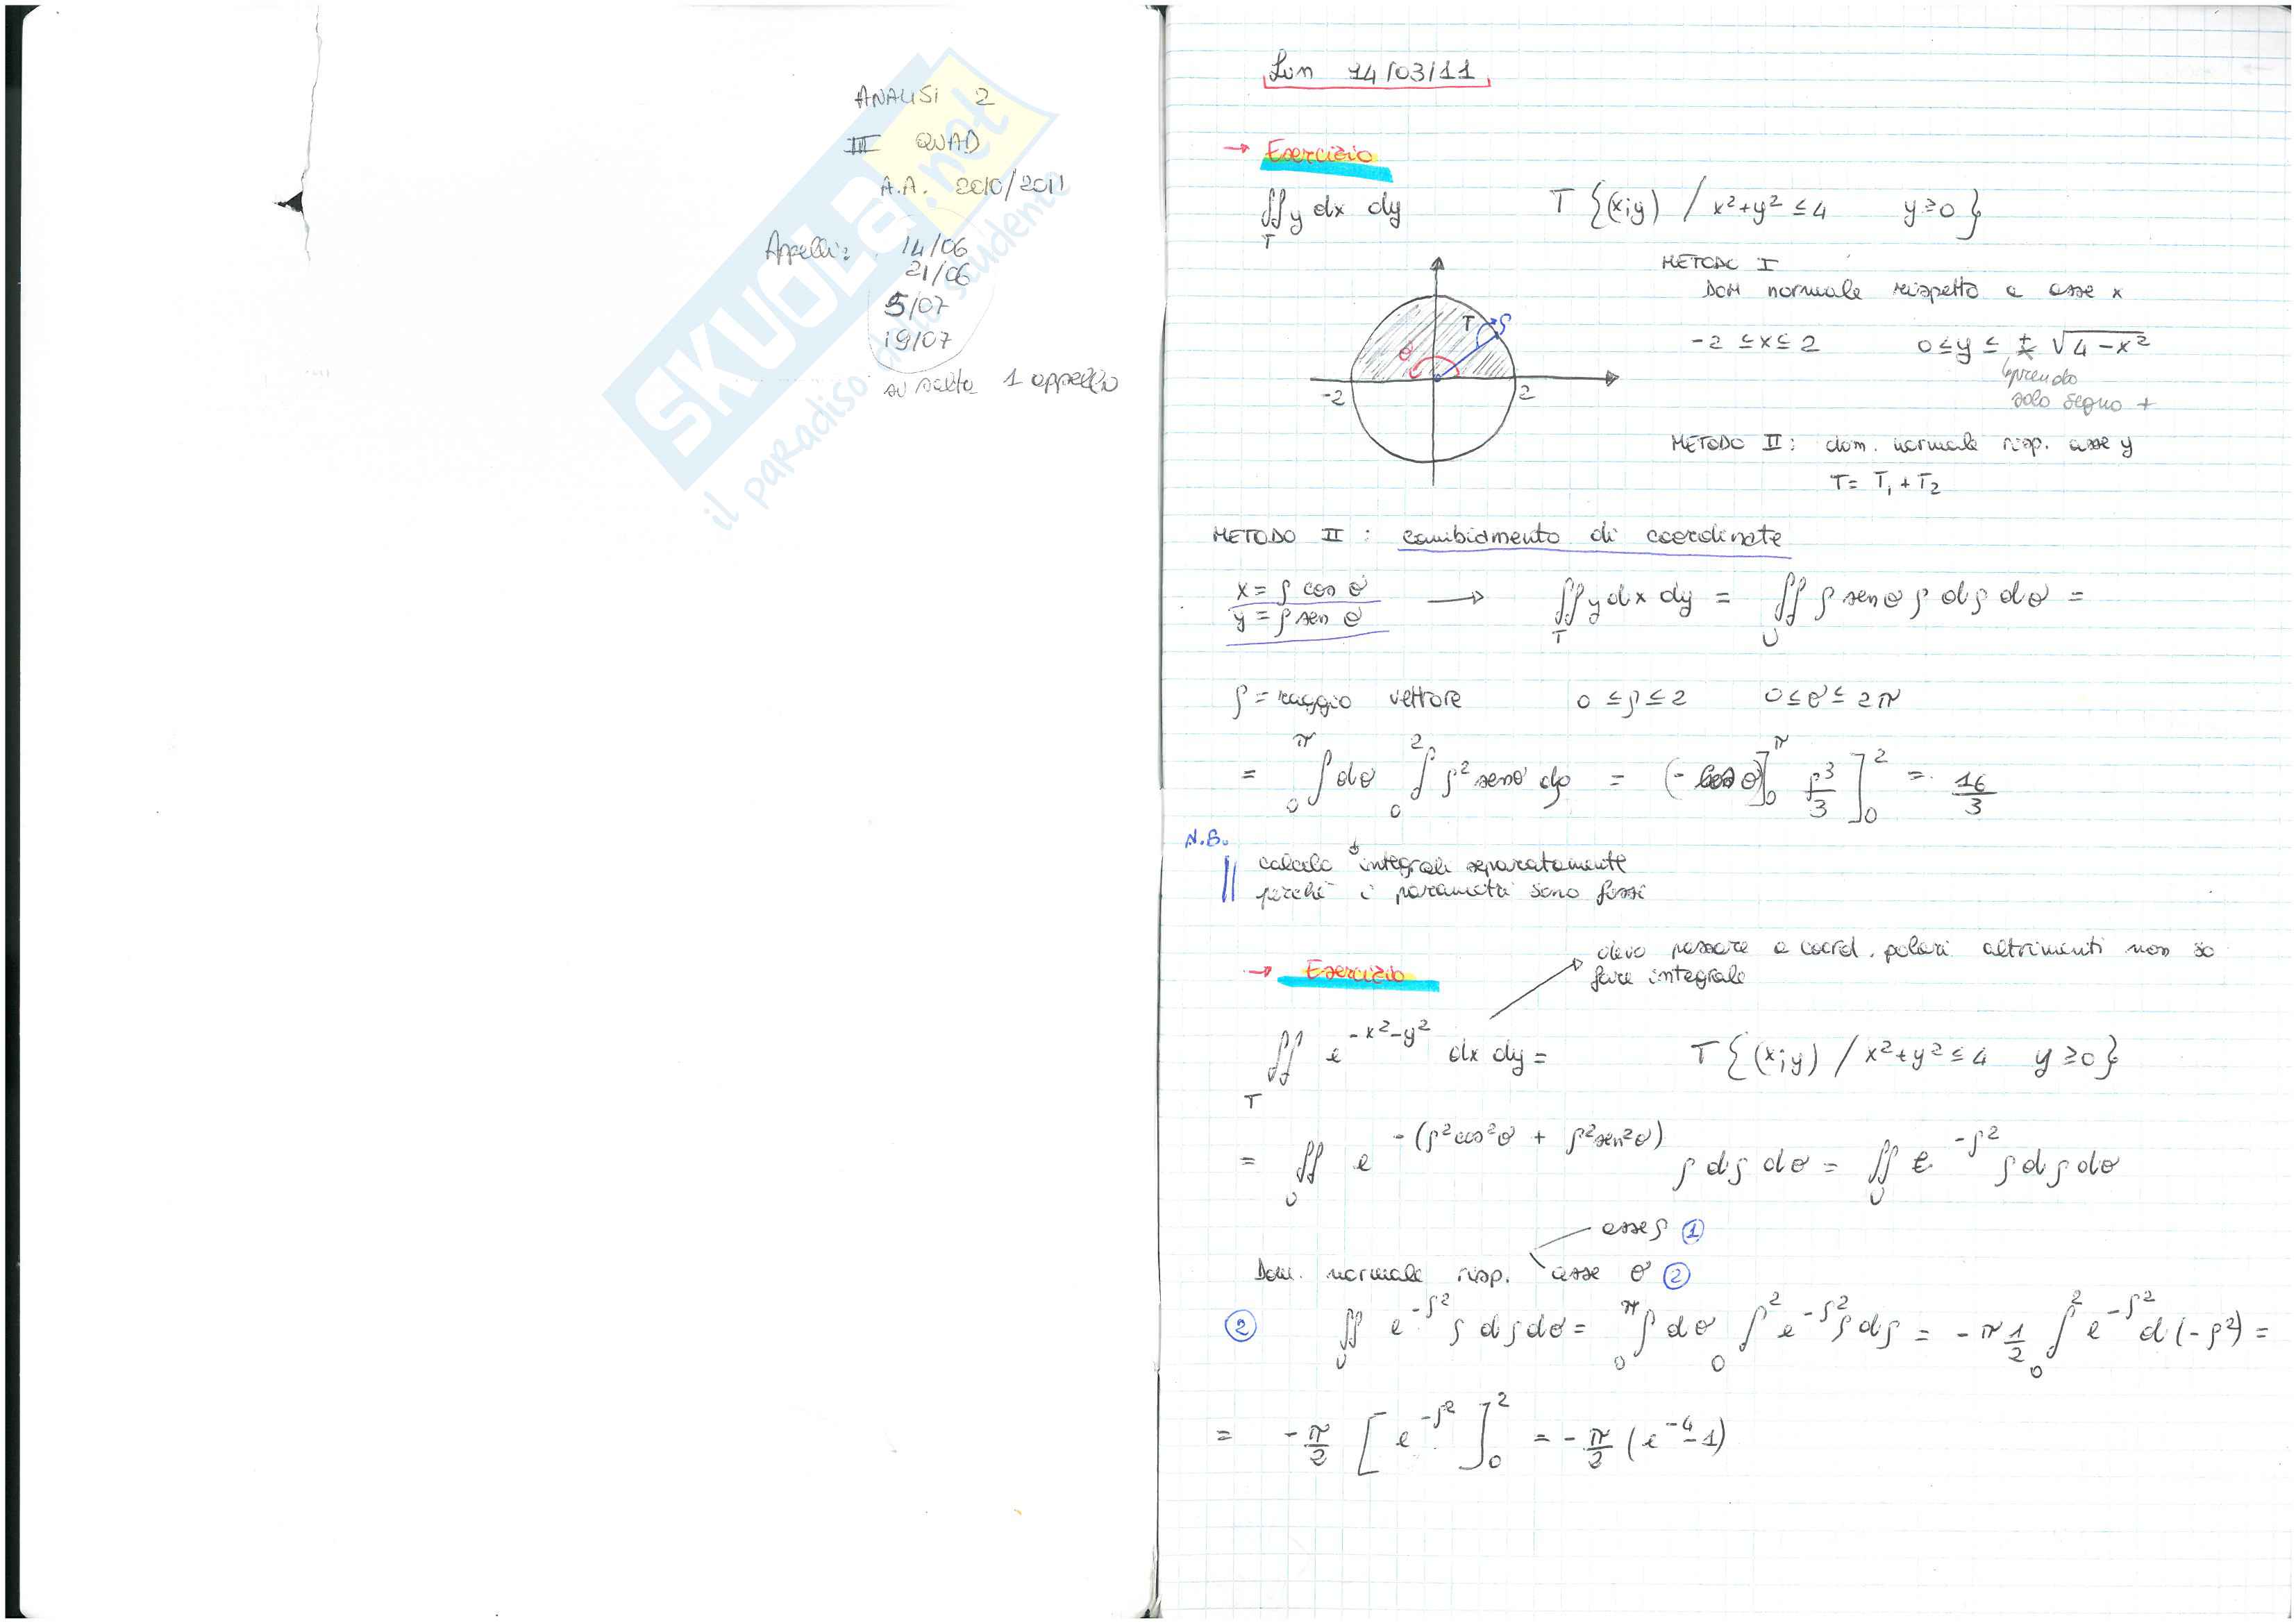 ANALISI 2
III QUAD
A.A. 2010/2011
Appelli: 14/06
21/06
5/07
19/07
si salta 1 appello
SKUOLA.net
il paradiso dello studente
Lun 14/03/11
→ Esercizio
∬_T y dx dy T {(x;y) / x²+y² ≤ 4 y ≥ 0}
METODO I
DOM normale rispetto a asse x
-2 ≤ x ≤ 2 0 ≤ y ≤ ± √4-x²
prendo
solo segno +
T ρ
θ
-2 2
METODO II: dom. normale risp. asse y
T = T₁ + T₂
METODO II : cambiamento di coordinate
x = ρ cos θ
y = ρ sen θ
→ ∬_T y dx dy = ∬_U ρ sen θ ρ dρ dθ =
ρ = raggio vettore 0 ≤ ρ ≤ 2 0 ≤ θ ≤ 2π
= ∫₀^π dθ ∫₀² ρ² senθ dρ = (- cos θ]₀^π ρ³/3 ]₀² = 16/3
N.B.
calcolo integrali separatamente
perché i parametri sono fissi
→ Esercizio
devo passare a coord. polari altrimenti non so
fare integrale
∬_T e^(-x²-y²) dx dy = T {(x;y) / x²+y² ≤ 4 y ≥ 0}
= ∬_U e^(-(ρ²cos²θ + ρ²sen²θ)) ρ dρ dθ = ∬_U e^(-ρ²) ρ dρ dθ
asse ρ ①
Dom. normale risp. asse θ ②
② ∬_U e^(-ρ²) ρ dρ dθ = ∫₀^π dθ ∫₀² e^(-ρ²) ρ dρ = - π 1/2 ∫₀² e^(-ρ²) d(-ρ²) =
= - π/2 [e^(-ρ²)]₀² = - π/2 (e^(-4) - 1)